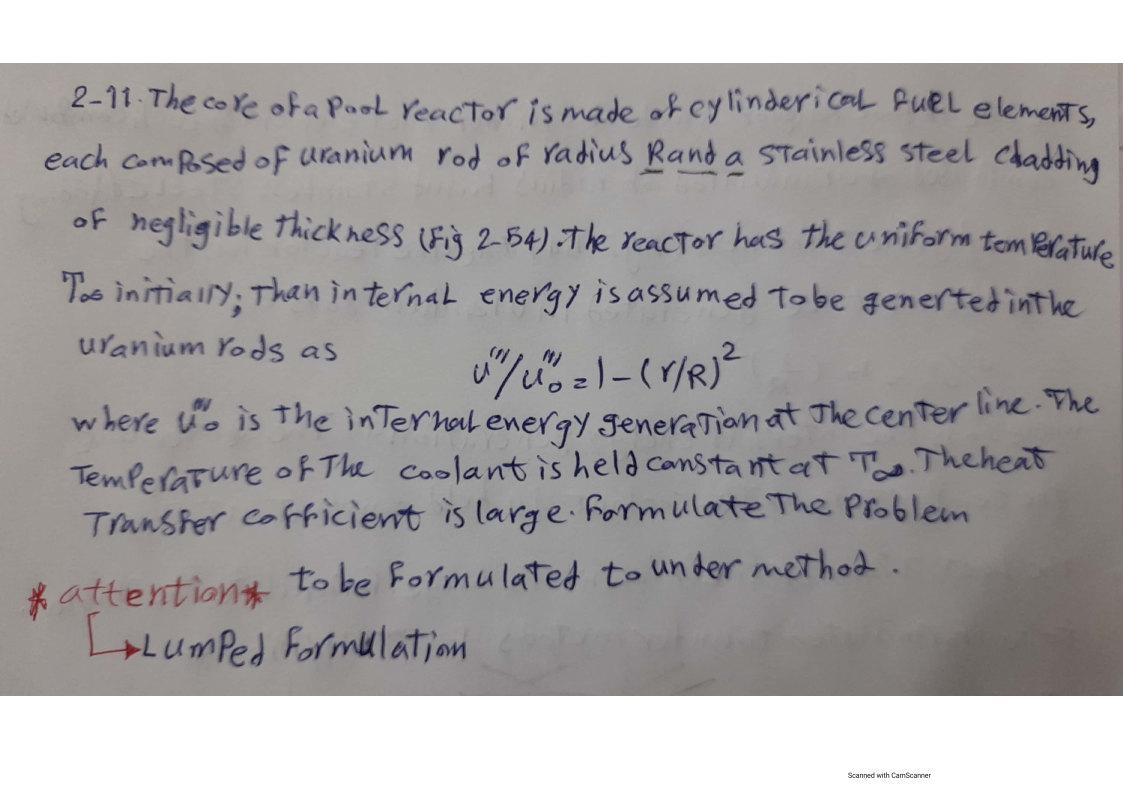 2-11. The core of a pool reactor is made of cylinderical fuel elements,
each composed of uranium rod of radius R and a stainless steel cladding
of negligible thickness (Fig 2-54). The reactor has the uniform temperature
T∞ initially; Than internal energy is assumed to be generted in the
uranium rods as
u'''/u'''₀ = 1 - (r/R)²
where u'''₀ is the internal energy generation at The center line. The
Temperature of The coolant is held constant at T∞. The heat
Transfer cofficient is large. Formulate The Problem
to be Formulated to under method.
* attention *
Lumped Formulation
Scanned with CamScanner